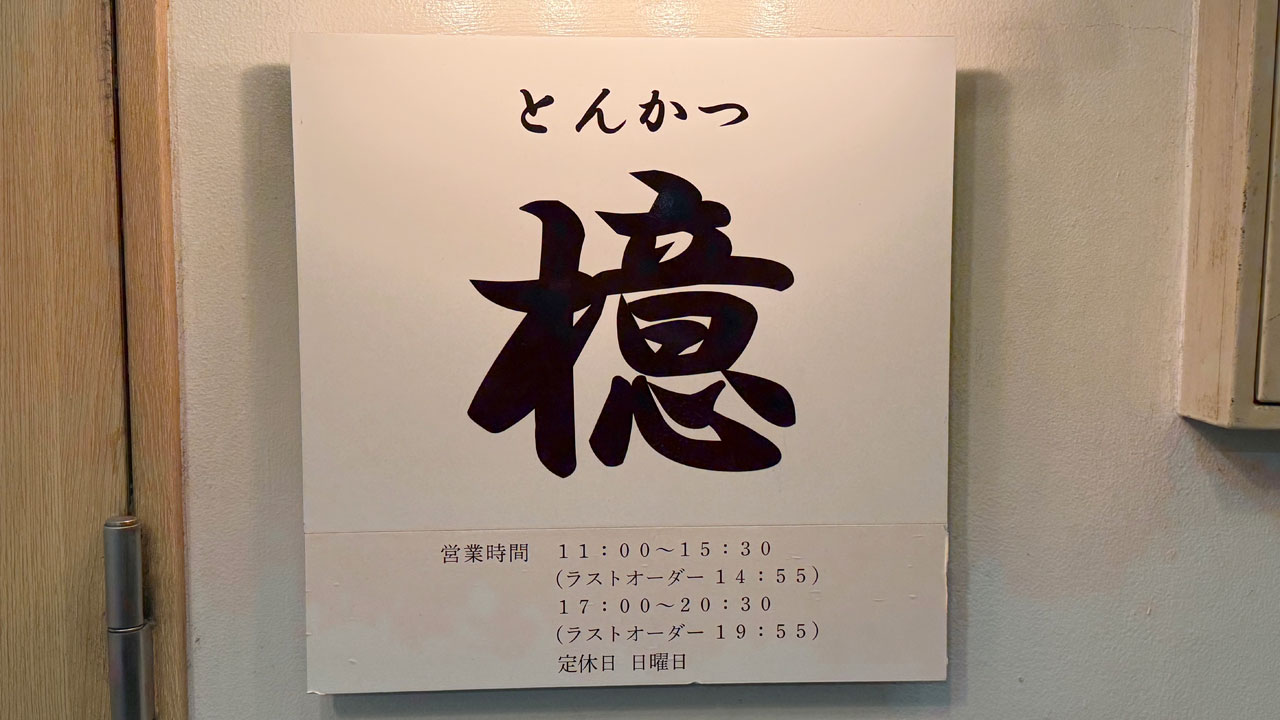 とんかつ
檍
営業時間 11:00～15:30
(ラストオーダー 14:55)
17:00～20:30
(ラストオーダー 19:55)
定休日 日曜日